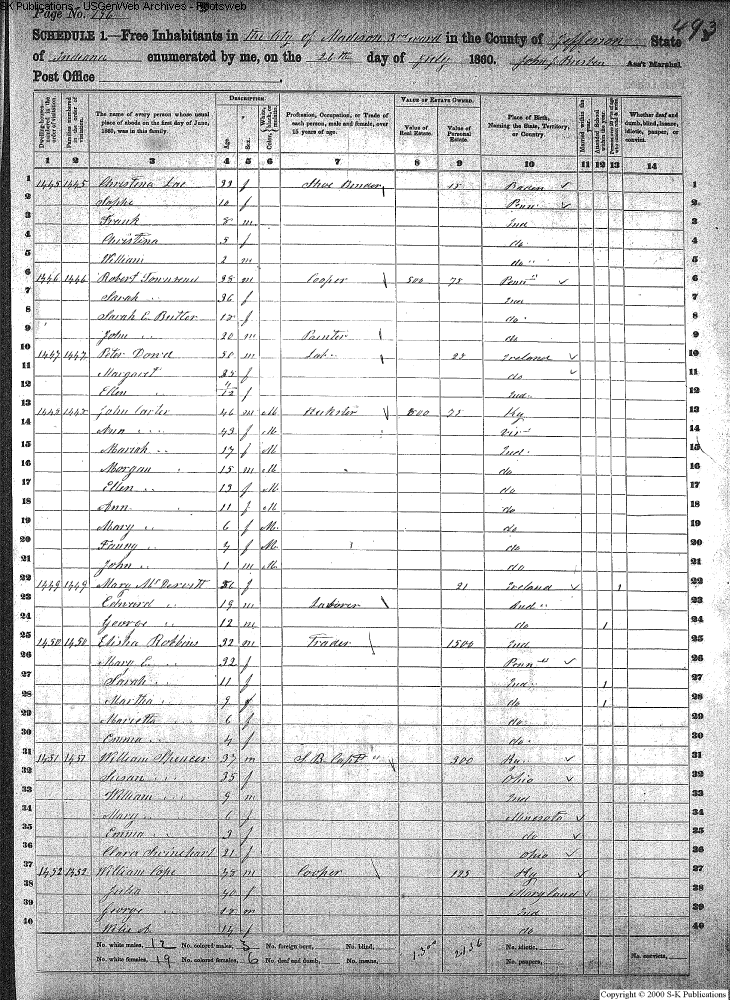 SK Publications - USGenWeb Archives - Rootsweb
Page No. 156
493
SCHEDULE 1.—Free Inhabitants in the City of Madison 3rd ward in the County of Jefferson State
of Indiana enumerated by me, on the 26th day of July 1860. Ass't Marshal.
Post Office
DESCRIPTION. VALUE OF ESTATE OWNED.
The name of every person whose usual place of abode on the first day of June, 1860, was in this family. Age. Sex. Profession, Occupation, or Trade of each person, male and female, over 15 years of age. Value of Real Estate. Value of Personal Estate. Place of Birth, Naming the State, Territory, or Country. Whether deaf and dumb, blind, insane, idiotic, pauper, or convict.
1 2 3 4 5 6 7 8 9 10 11 12 13 14
1 1445 1445 Christina f Shoe Binder Baden 1
2 10 f Penn 2
3 Frank 8 m Ind 3
4 Christina f do 4
5 William 2 m do " 5
6 1446 1446 Robert Townsend 38 m Cooper 500 75 Penn " 6
7 Sarah " 36 f Ind 7
8 Sarah E Butler f do 8
9 John 20 m Painter do 9
10 1447 1447 Peter Dowd 50 m Lab. Ireland 10
11 Margaret f do 11
12 Ellen f Ind 12
13 John Carter 46 m M Huckster 800 75 Ky 13
14 Ann " 43 f M Vir 14
15 Mariah " 17 f M Ind 15
16 Morgan " 15 m M do 16
17 Ellen " 13 f M do 17
18 Ann " 11 f M do 18
19 Mary " 6 f M do 19
20 Fanny " f M do 20
21 John " 1 m M do 21
22 1449 1449 Mary f Ireland 1 22
23 Edward " 19 m Laborer Ind " 23
24 George " 12 m do 1 24
25 1450 1450 Elisha Robbins 32 m Trader 1500 Ind 25
26 Mary E. " 32 f Penn " 26
27 Sarah " 11 f Ind 1 27
28 Martha " 9 f do 1 28
29 Marietta " 6 f do 29
30 Emma " 4 f do 30
31 1451 1451 William Spencer 37 m S. B. Capt 300 Ky 31
32 Susan " 35 f Ohio 32
33 William " 9 m Ind 33
34 Mary " 6 f Minesota 34
35 Emma " 3 f do 35
36 Clara Swinehart 21 f Ohio 36
37 1452 1452 William Cope m Cooper 125 Ky 37
38 Julia 40 f Maryland 38
39 George " m Ind 39
40 14 f do 40
No. white males, 12 No. colored males, 3 No. foreign born, No. blind, 1.300 2.136 No. idiotic,
No. white females, 19 No. colored females, 6 No. deaf and dumb, No. insane, No. paupers, No. convicts,
Copyright © 2000 S-K Publications